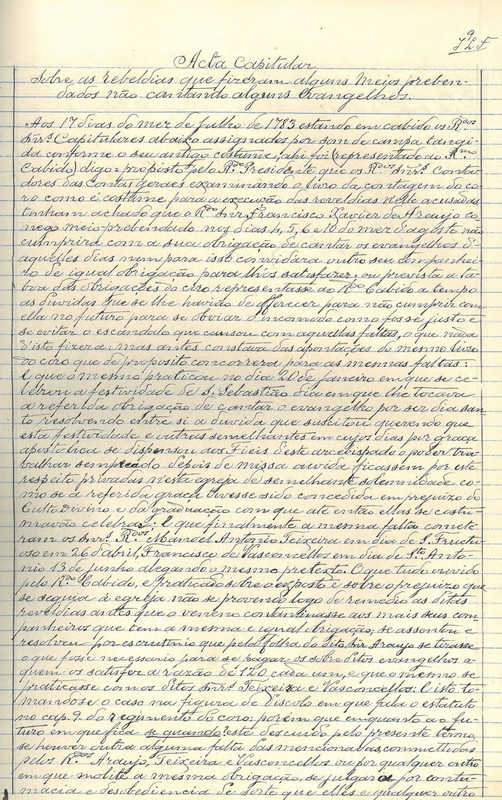 Acta Capitular
Sobre as rebeldias que fizeram alguns Meios preben-
dados não cantando alguns Evangelhos.
Aos 17 dias do mez de Julho de 1783 estando em cabido os R.dos
Snr.s Capitulares abaixo assignados por som de campa tangi-
da conforme o seu antigo costume, ahi foi (representado ao R.mo
Cabido) digo = proposto pelo R.do Presidente que os R.dos Snr.s Conta-
dores das contas geraes examinando o livro da contagem do co-
ro como é costume para a execução das revedias n'elle accusadas
tinham achado que o R.do Snr. Francisco Xavier de Araujo co-
nego meio prebendado nos dias 4, 5, 6 e 10 do mez d'agosto não
cumprira com a sua obrigação de cantar os evangelhos d'
aquelles dias nem para isso convidara outro seu companhei-
ro de igual obrigação para lh'os satisfazer, ou prevista a ta-
boa das obrigações do côro representasse ao R.do Cabido a tempo
as duvidas que se lhe havião de offerecer para não cumprir com
ella no futuro para se obviar o incomodo como fosse justo e
se evitar o escandulo que causou com aquellas faltas, o que nada
d'isto fizera: mas antes constava das apontações do mesmo livro
do côro que de proposito concorrera para as mesmas faltas:
E que o mesmo praticou no dia 20 de janeiro em que se ce-
lebrou a festividade de S. Sebastião dia em que lhe tocava
a referida obrigação de cantar o evangelho por ser dia san-
to resolvendo entre si a duvida que suscitou querendo que
esta festividade e outras semelhantes em cujos dias por graça
apostolica se dispensou aos Fieis d'este arcebispado o poder tra-
balhar sempre depois de missa ouvida ficassem por este
respeito privadas n'esta egreja de semelhante solemnidade co-
mo se a referida graça tivesse sido concedida em prejuizo do
Culto Divino e da graduação com que até então ellas se costu-
mavão celebrar: E que finalmente a mesma falta comete-
ram os Snr.s R.dos Manoel Antonio Teixeira em dia de S. Fructu-
oso em 26 d'abril, Francisco de Vasconcellos em dia de S.to Anto-
nio 13 de junho alegando o mesmo pretexto. O que tudo ouvido
pelo R.do Cabido, e praticado sobre o exposto e sobre o prejuizo que
se seguia á egreja não se provendo logo de remedio as ditas
revedias antes que o veneno contaminasse aos mais seus com-
panheiros que tem a mesma e igual obrigação, se assentou e
resolveu por escrutinio que pela folha do dito Snr. Araujo se tirasse
o que fosse necessario para se pagar os sobreditos evangelhos a
quem os satisfez a razão de 120 cada um, e que o mesmo se
praticasse com os ditos Snr.s Teixeira e Vasconcellos: E isto to-
mando-se o caso na figura de Discolo em que fala o estatuto
no cap. 9. do regimento do coro: porem que emquanto ao fu-
turo em que fica se quando este descuido pelo presente termo,
se houver outra alguma falta das mencionadas commettidas
pelos R.dos Araujo, Teixeira e Vasconcellos ou por qualquer outro
em que milite a mesma obrigação, se julgará por contu-
macia e desobediencia de sorte que elles e qualquer outro